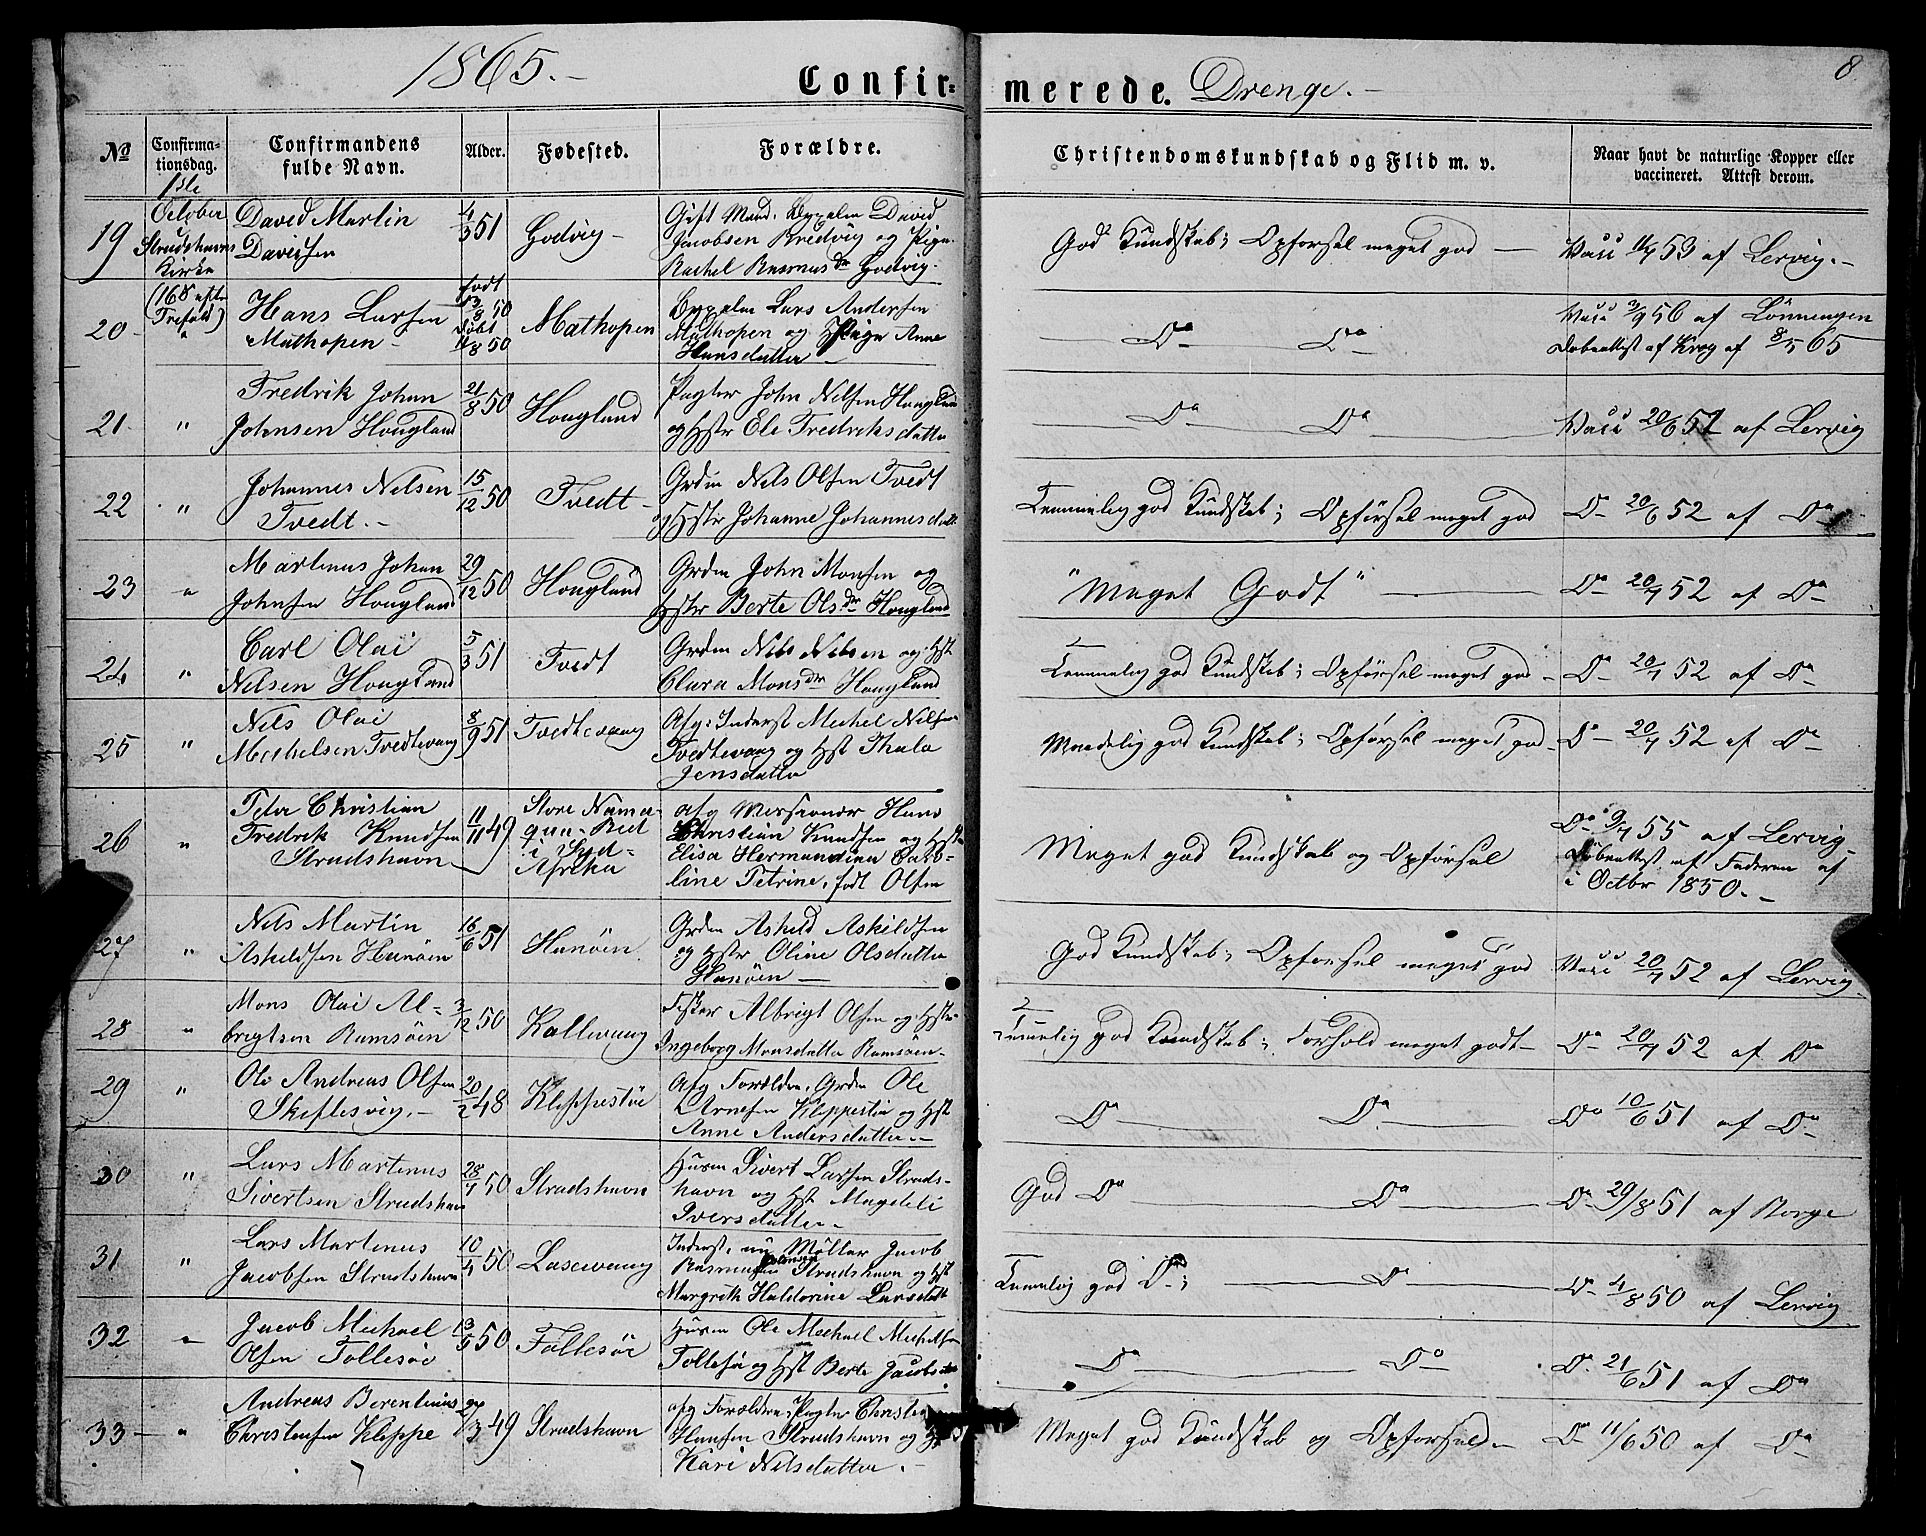 1865.-
Confirmerede. Drenge.-
8
No
Confirmationsdag.
Confirmandens fulde Navn.
Alder.
Fødested.
Forældre.
Christendomskundskab og Flid m. v.
Naar havt de naturlige Kopper eller vaccineret. Attest derom.
19
1ste
October
Strudshavns
Kirke
(16de efter
Trefold)
David Martin
Davidsen
4/3 51
Godvig
Gift Mand,
David
Jacobsen Bredvig og Pige
Rachel Rasmusdr Godvig.
God Kundskab; Opførsel meget god
Vacc 11/7 53 af Lervig.-
20
"
Hans Larsen
Mathopen
født
13/8 50
døbt
11/8 50
Mathopen
Lars Andersen
Mathopen og Pige Anne
Hansdatter
Do Do
Vacc 3/9 56 af Lønningen
Døbeattest af Krog af 8/5 65
21
"
Fredrik Johan
Johnsen Hougland
21/8 50
Hougland
Pagter John Nilsen Hougland
og Hstr Ele Fredriksdatter
Do Do
Vacc 20/6 52 af Lervig
22
"
Johannes Nelsen
Tvedt.-
15/12 50
Tvedt
Grdm Nels Olsen Tvedt
og Hstr Johanne Johannesdatt
Temmelig god Kundskab; Opførsel meget god
Do 20/6 52 af Do
23
"
Martinus Johan
Johnsen Hougland
29/12 50
Hougland
Grdm John Monsen og
Hstr Berte Olsdr Hougland
"Meget Godt"
Do 20/7 52 af Do
24
"
Carl Olai
Nelsen Hougland
5/3 51
Tvedt
Grdm Nels Nelsen og Hst
Clara Monsdr Hougland
Temmelig god Kundskab; Opførsel meget god
Do 20/7 52 af Do
25
"
Nels Olai
Michelsen Tvedtevaag
8/9 51
Tvedtevaag
Afg: Inderst Michel Nilsen
Tvedtevaag og Hst Thala
Jensdatter
Maadelig god Kundskab; Opførsel meget god
Do 20/7 52 af Do
26
"
Peter Christian
Fredrik Knudsen
Strudshavn
11/11 49
Store Nama-
qua-
i Syd-
Afrika
afg Missionær Hans
Christian Knudsen og Hstr
Elisa Hermandina Catho-
line Petrine, født Olsen
Meget god Kundskab og Opførsel
Do 9/7 55 af Lervig
Døbeattest af Faderen af
i Octbr 1850.-
27
"
Nels Martin
Askildsen Hanøen
16/6 51
Hanøen
Grdm Askild Askildsen
og Hstr Oline Olsdatter
Hanøen
God Kundskab; Opførsel meget god
Vacc 20/7 52 af Lervig
28
"
Mons Olai Al-
brigtsen Ramsøen
3/12 50
Kallevaag
Fisker Albrigt Olsen og Hstr
Ingeborg Monsdatter Ramsøen
Temmelig god Kundskab; Forhold meget godt
Do 20/7 52 af Do
29
"
Ole Andreas Olsen
Skiftesvig.-
20/2 48
Kleppestøe
Afg Forældre, Grdm Ole
Arnesen Kleppestøe og Hst
Anne Andersdatter.-
Do Do
Do 10/6 51 af Do
30
"
Lars Martinus
Sivertsen Strudshavn
28/7 50
Strudshavn
Husm Sivert Larsen Struds-
havn og Hst Magdeli
Iversdatter
God Do Do
Do 29/8 51 af Borge
31
"
Lars Martinus
Jacobsen Strudshavn
10/4 50
Lasevaag
Inderst, nu Møller Jacob
Rasmusen Strudshavn og Hst
Margrethe Haldorine Larsdatt
Temmelig god Do; Do
Do 4/8 50 af Lervig
32
"
Jacob Michael
Olsen Follesøe
13/5 50
Follesøe
Husm Ole Michael Michelsen
Follesøe og Hst Berte Jacobsdatter
Do Do
Do 21/6 51 af Do
33
"
Andreas Berentinus
Christensen Kleppe
3 49
Strudshavn
afg Forældre, Pagter Christen
Hansen Strudshavn og Hst
Kari Nilsdatter.
Meget god Kundskab og Opførsel
Do 11/6 50 af Do